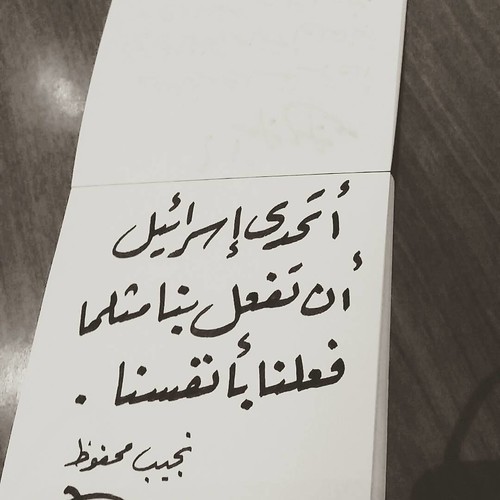 أتحدى إسرائيل
أن تفعل بنا مثلما
فعلنا بأنفسنا .
نجيب محفوظ